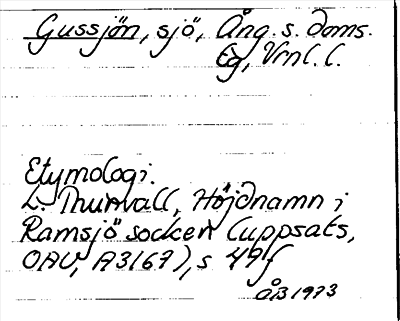 Gussjön, sjö, Ång. s. Doms.
Eg, Vrnl. l.
Etymologi.
L. Thunvall, Höjdnamn i
Ramsjö socken (uppsats,
OAU, A3167), s 49f
ÅB 1973